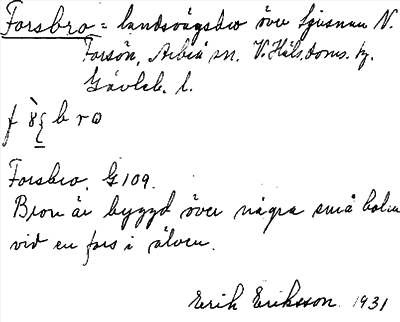 Forsbro = landsvägsbro över Ljusnan N.
Forsön, Arbrå sn. V. Häls. doms. hg.
Gävleb. l.
Forsbro, G 109.
Bron är byggd över några små holm
vid en fors i älven.
Erik Eriksson 1931